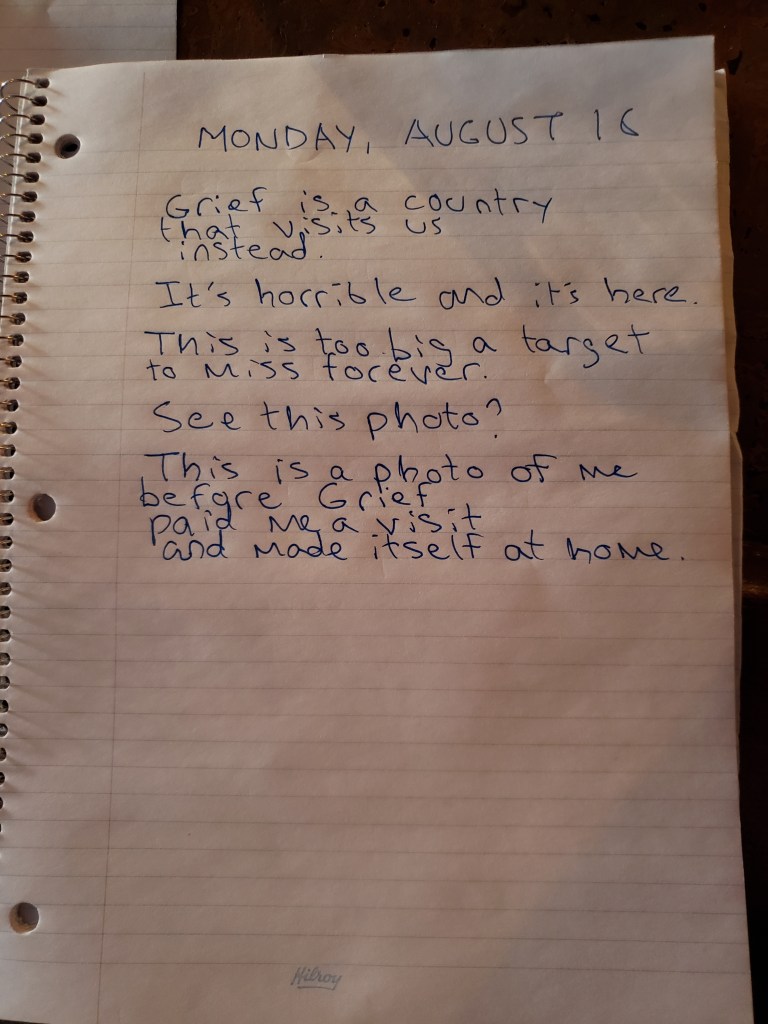 MONDAY, AUGUST 16
Grief is a country
that visits us
instead.
It's horrible and it's here.
This is too big a target
to miss forever.
See this photo?
This is a photo of me
before Grief
paid me a visit
and made itself at home.
Hilroy